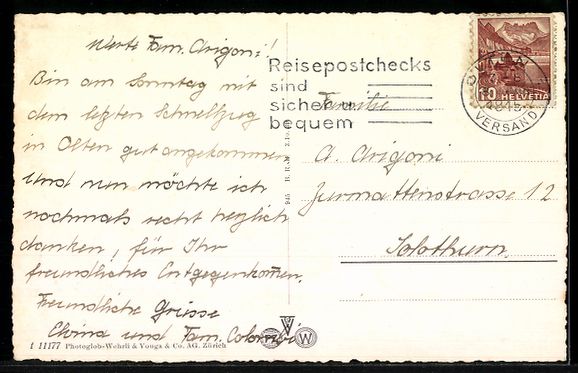 Werte Fam. Arigoni!
Bin am Sonntag mit
dem letzten Schnellzug
in Olten gut angekommen
und nun möchte ich
nochmals recht herzlich
danken, für Ihr
freundliches Entgegenkommen.
Freundliche Grüsse
Elvina und Fam. Colombi
1 11177 Photoglob-Wehrli & Vouga & Co. AG. Zürich
Reisepostchecks
sind
sicher u.
bequem
HELVETIA
10
VERSAND
Familie
A. Arigoni
Jurmattenstrasse 12
Solothurn.
W